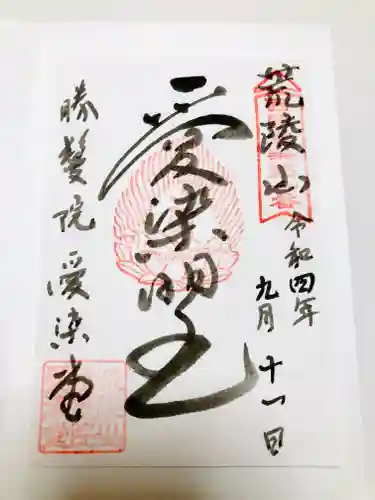 荒陵山
令和四年
九月十一日
愛染明王
勝鬘院 愛染堂